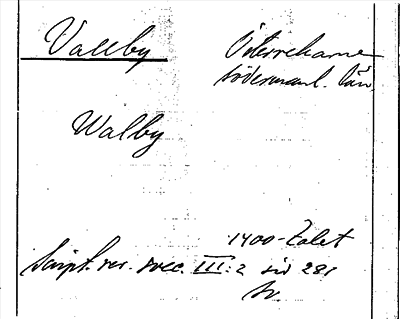 Vallby
Österrekarne
Södermanl. län
Walby
1400-talet
Script. rer. svec. III:2 sid 281